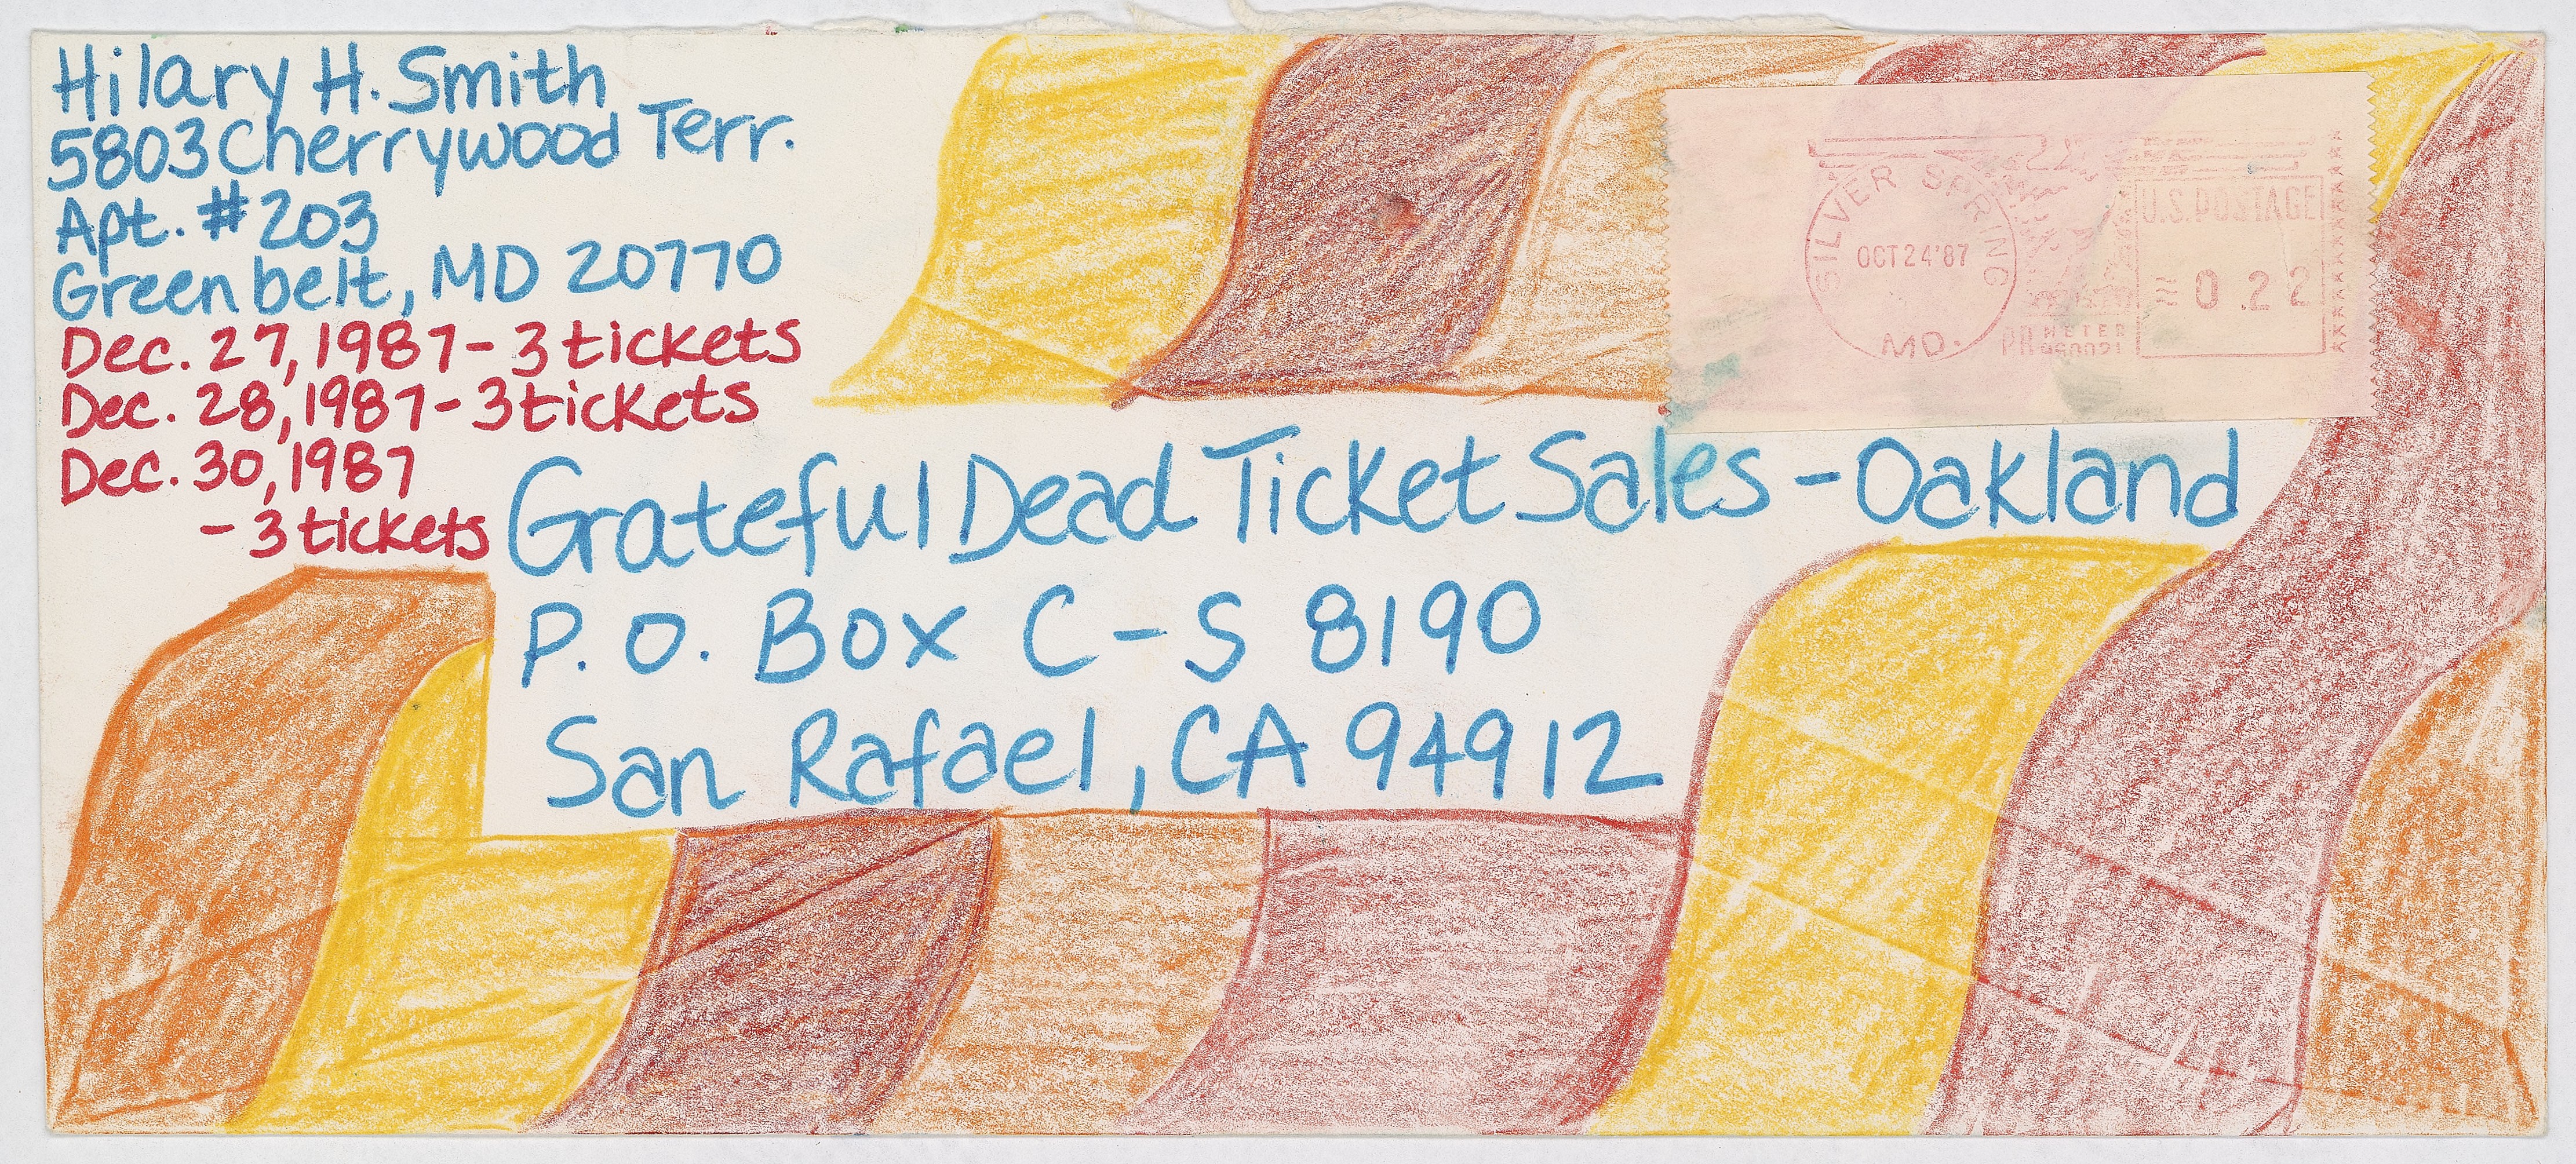 Hilary H. Smith
5803 Cherrywood Terr.
Apt. #203
Greenbelt, MD 20770
Dec. 27, 1987 - 3 tickets
Dec. 28, 1987 - 3 tickets
Dec. 30, 1987
- 3 tickets
SILVER SPRING
OCT 24 '87
MD.
U.S. POSTAGE
0.22
METER
Grateful Dead Ticket Sales - Oakland
P. O. Box C-S 8190
San Rafael, CA 94912